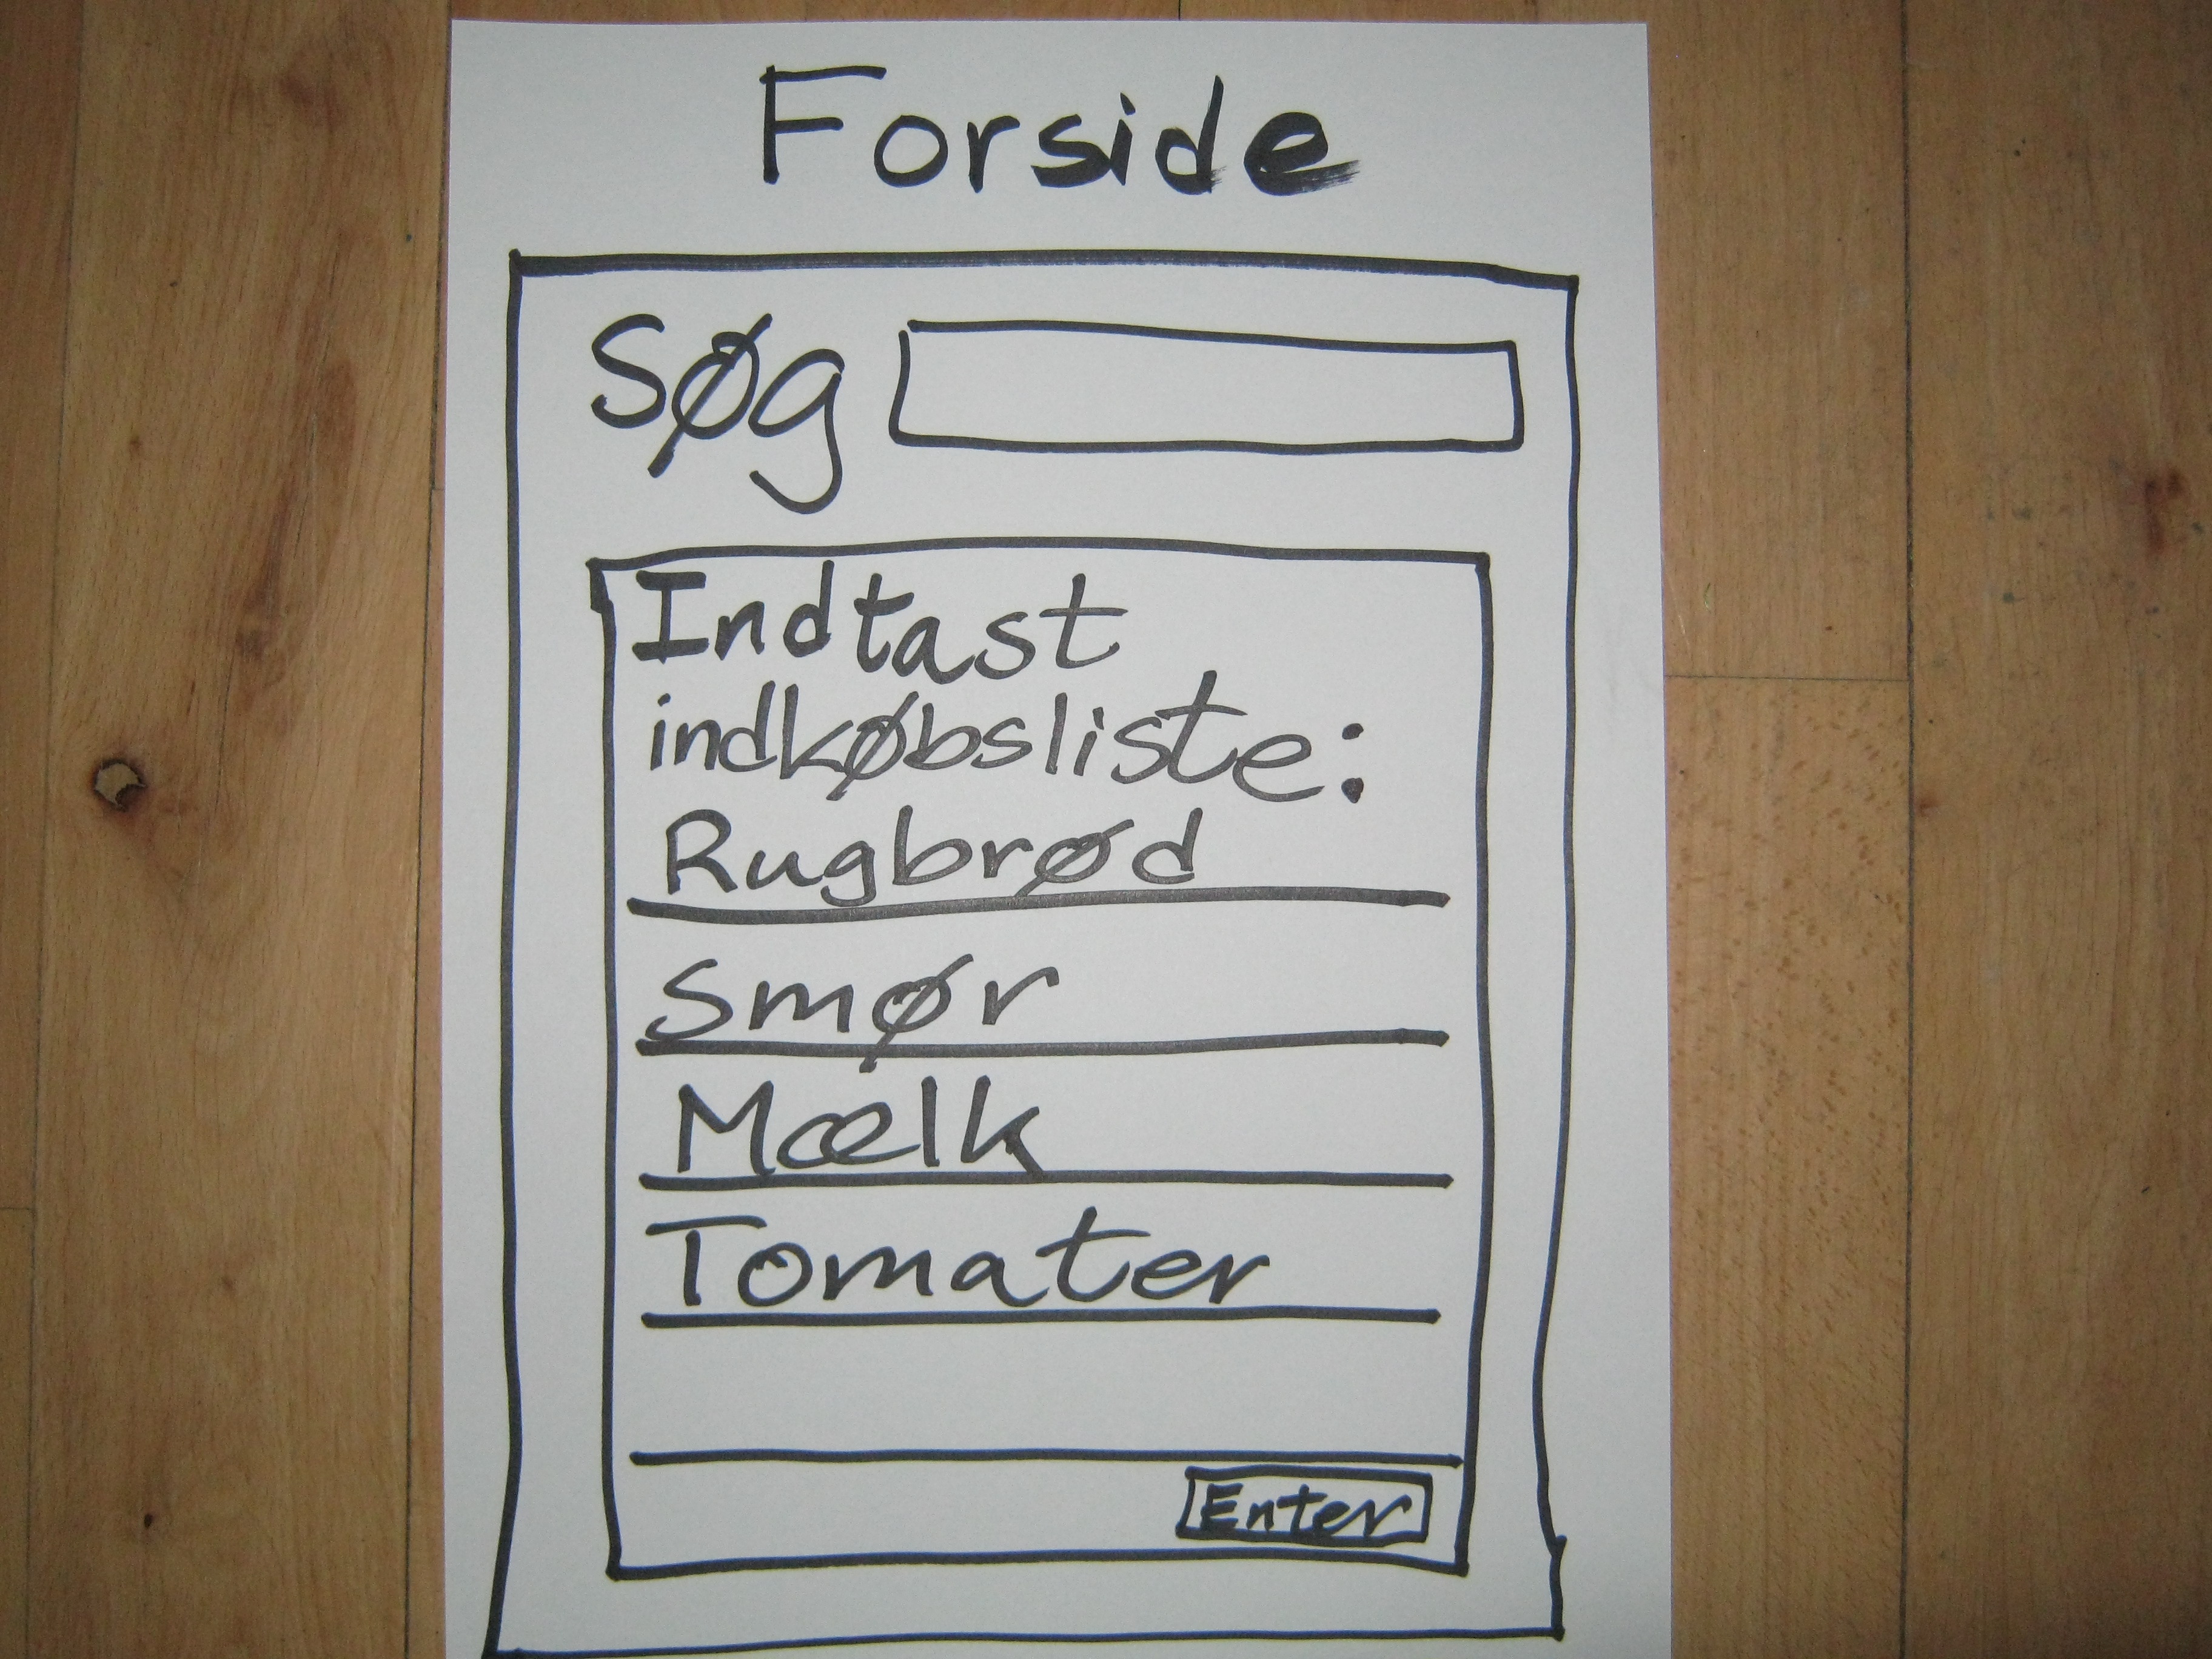 Forside
Søg
Indtast
indkøbsliste:
Rugbrød
Smør
Mælk
Tomater
Enter